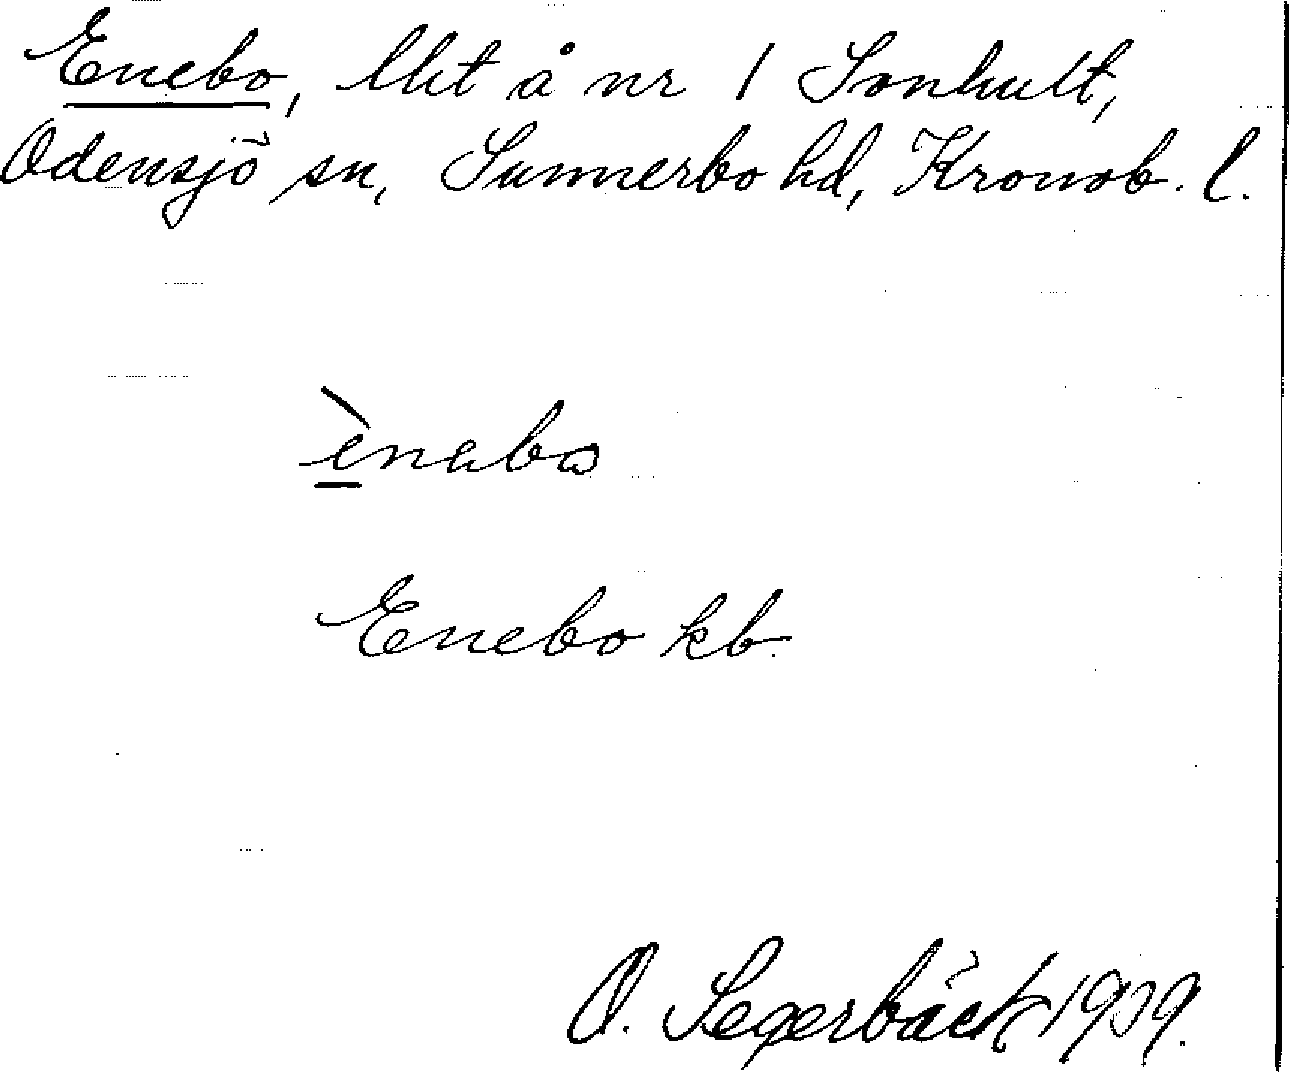 Enebo, lht å nr 1 Sonhult,
Odensjö sn, Sunnerbo hd, Kronob. l.
ènabo
Enebo kb.
O. Segerbäck 1939.